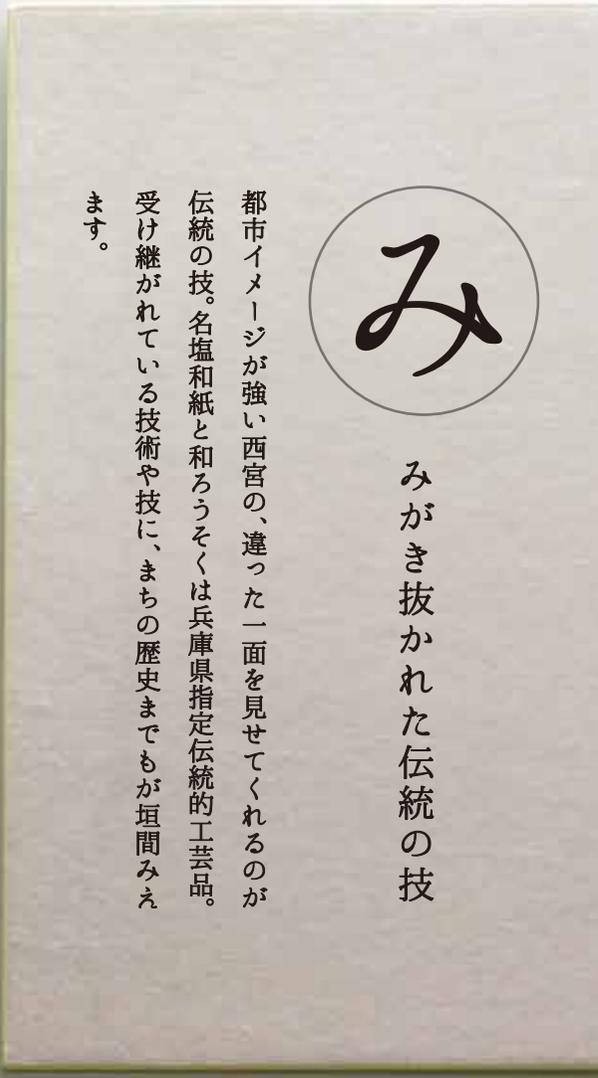 み
みがき抜かれた伝統の技
都市イメージが強い西宮の、違った一面を見せてくれるのが
伝統の技。名塩和紙と和ろうそくは兵庫県指定伝統的工芸品。
受け継がれている技術や技に、まちの歴史までもが垣間みえ
ます。